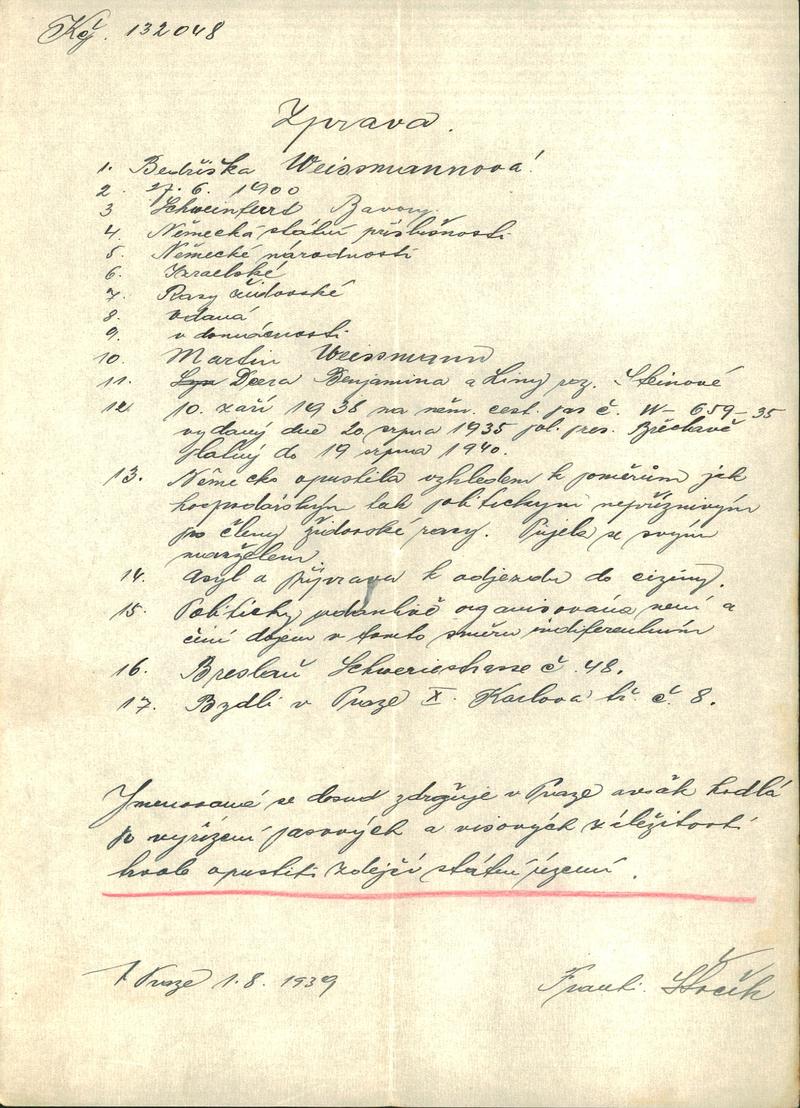 Kč. 132048
Zprava.
1. Bedřiška Weissmannová
2. 27. 6. 1900
3 Schweinfurt Bavory.
4. Německá státní příslušnosti
5. Německé národnosti
6. Izraelské
7. Rasy židovské
8. vdaná
9. v domácnosti
10. Martin Weissmann
11. Dcera Benjamina a Liny roz. Steinové
12. 10. září 1938 na něm. cest. pas č. W-659-35
vydaný dne 20 srpna 1935 pol. pres.
platný do 19 srpna 1940.
13. Německo opustila vzhledem k poměrům jak
hospodářským tak politickým nepříznivým
po členy židovské rasy. Přijela se svým
manželem.
14. Asyl a příprava k odjezdu do ciziny.
15. Politicky organisována není a
činí dojem v tomto směru indiferentním
16. Breslau č. 48.
17. Bydlí v Praze X. Karlova tř. č. 8.
Jmenovaná se dosud zdržuje v Praze avšak hodlá
po vyřízení pasových a visových záležitostí
opustiti zdejší státní území.
V Praze 1. 8. 1939
Franti.